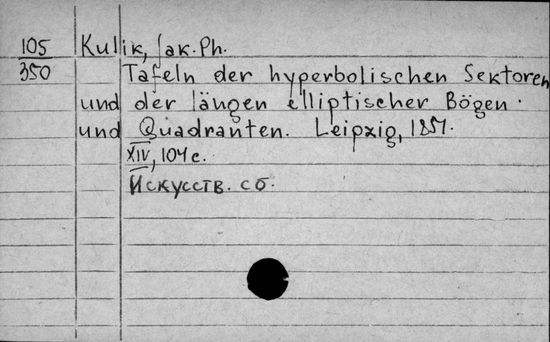 105 Kulik, Jak. Ph.
350 Tafeln der hyperbolischen Sektoren
und der längen elliptischer Bögen
und Quadranten. Leipzig, 1851.
XIV, 104 с.
Искусств. сб.